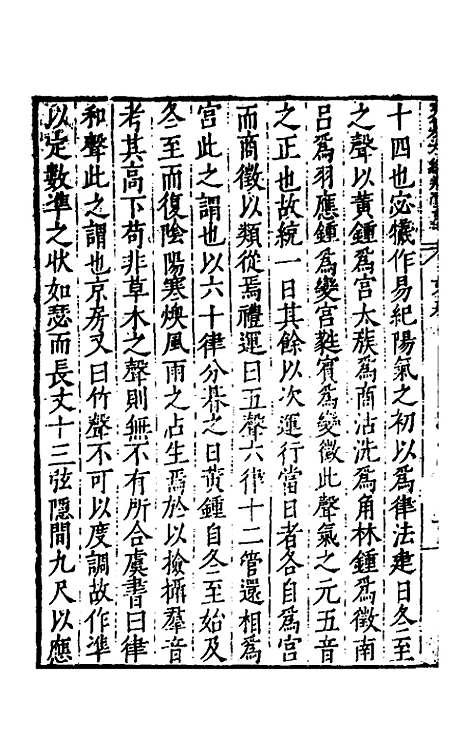 十四也宓犧作易紀陽氣之初以爲律法建日冬至
之聲以黃鍾爲宮太簇爲商沽洗爲角林鍾爲徵南
呂爲羽應鍾爲變宮蕤賓爲變徵此聲氣之元五音
之正也故統一日其餘以次運行當日者各自爲宮
而商徵以類從焉禮運曰五聲六律十二管還相爲
宮此之謂也以六十律分朞之日黃鍾自冬至始及
冬至而復陰陽寒燠風雨之占生焉於以撿攝羣音
考其高下苟非草木之聲則無不有所合虞書曰律
和聲此之謂也京房又曰竹聲不可以度調故作準
以定數準之狀如瑟而長丈十三弦隱間九尺以應